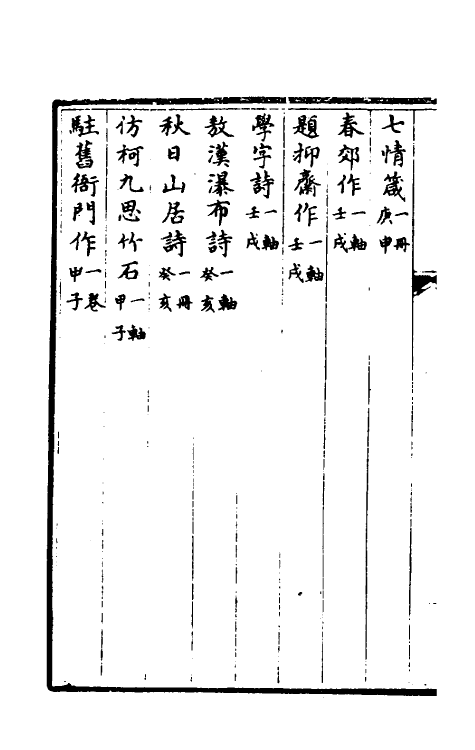 七情箴一冊庚申
春郊作一軸壬戌
題抑齋作一軸壬戌
學字詩一軸壬戌
敖漢瀑布詩一軸癸亥
秋日山居詩一冊癸亥
仿柯九思竹石一軸甲子
駐舊衙門作一卷甲子